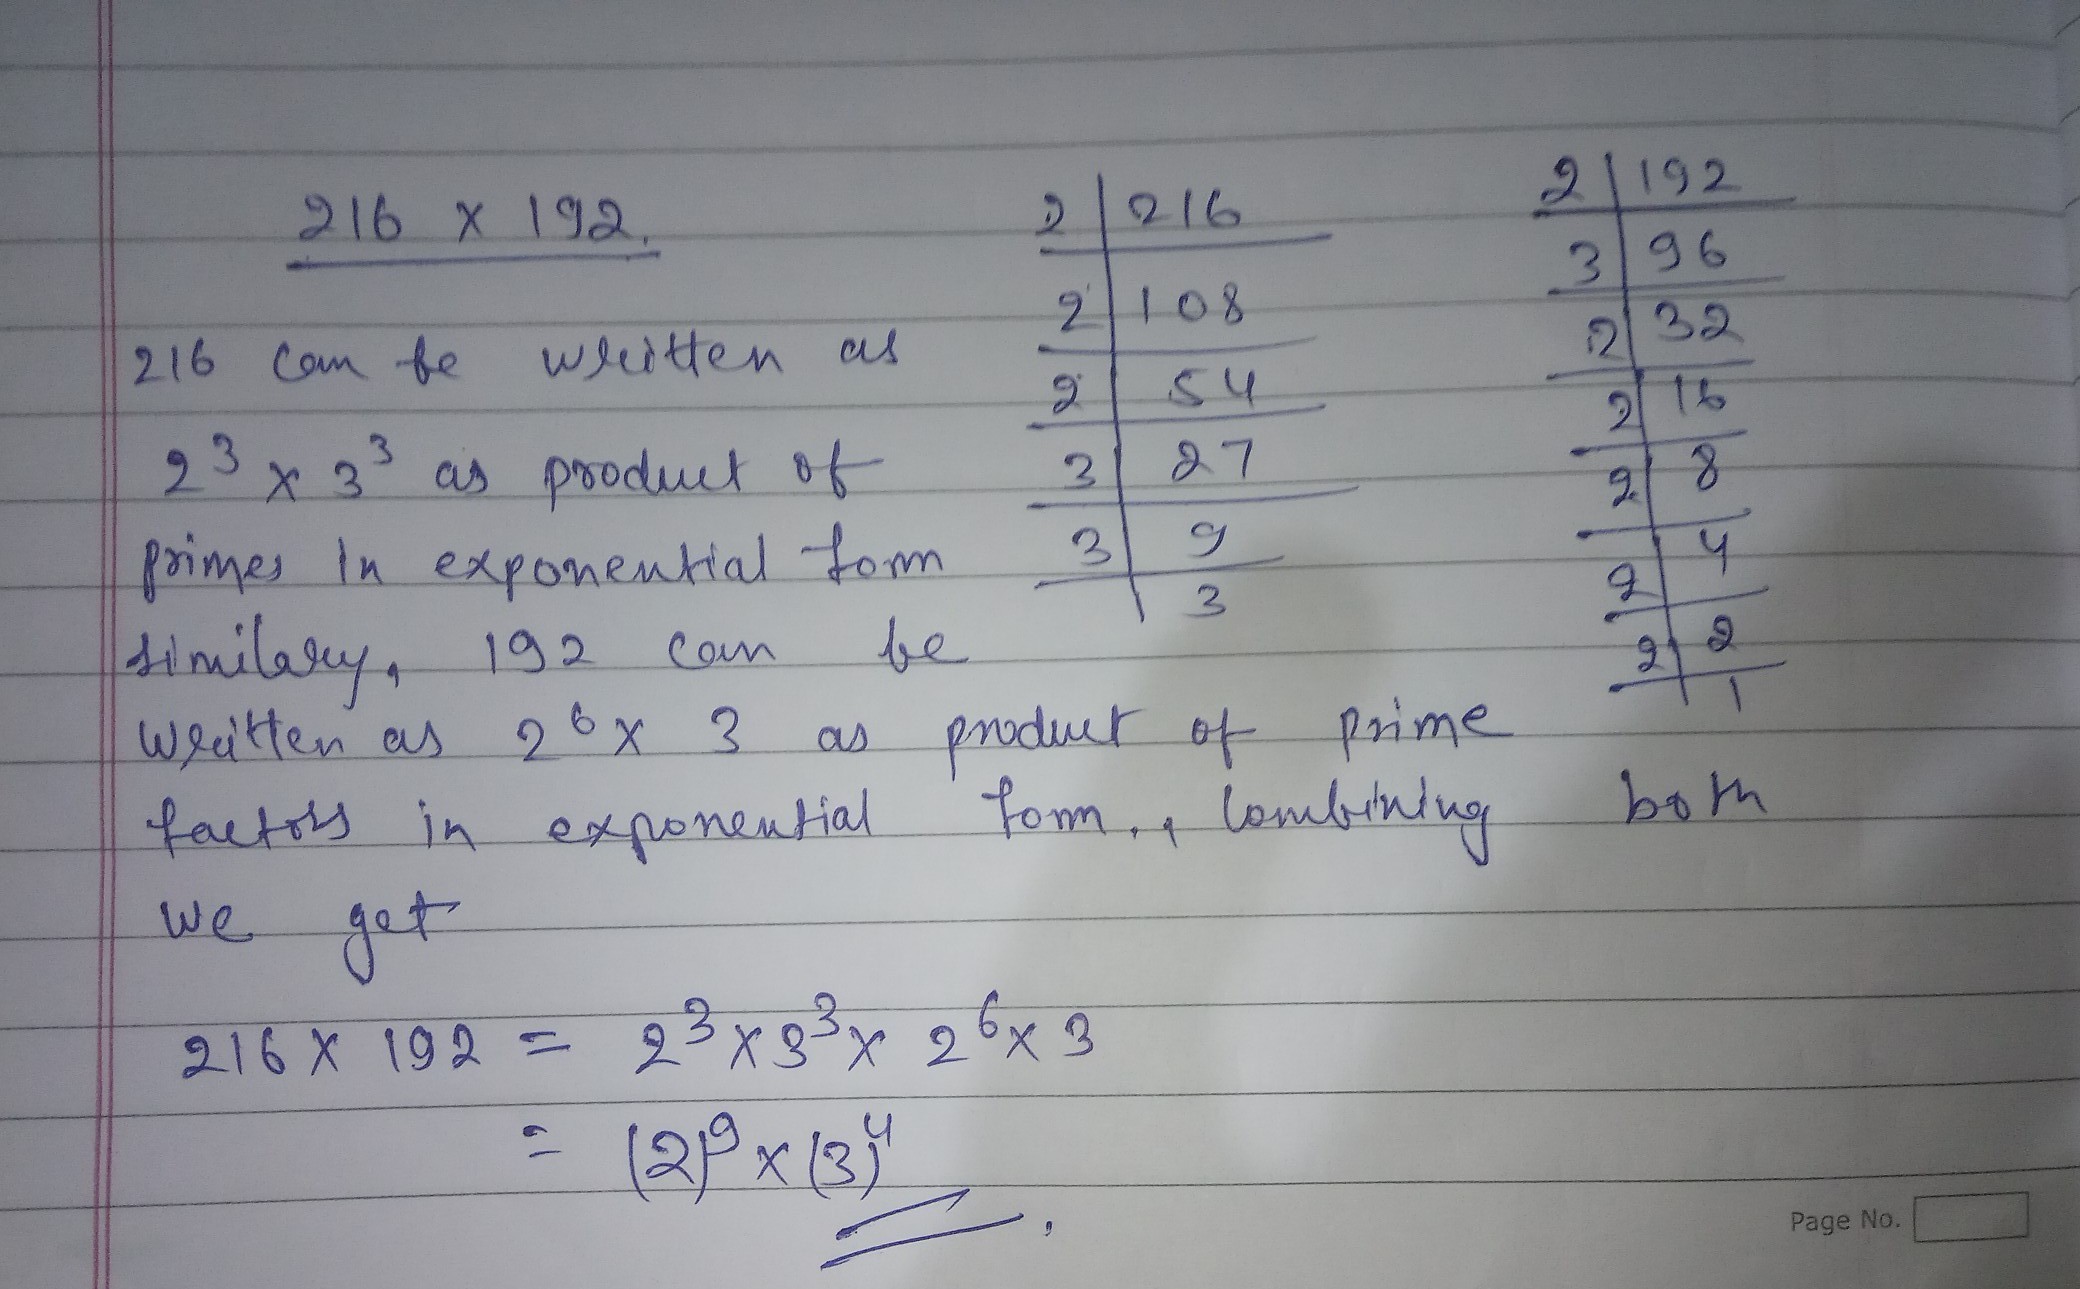 216 x 192.
216 can be written as
2³ x 3³ as product of
primes in exponential form
similary, 192 can be
written as 2⁶ x 3 as product of prime
factors in exponential form., combining both
we get
216 x 192 = 2³ x 3³ x 2⁶ x 3
= (2)⁹ x (3)⁴
2 | 216
2 | 108
2 | 54
3 | 27
3 | 9
| 3
2 | 192
3 | 96
2 | 32
2 | 16
2 | 8
2 | 4
2 | 2
| 1
Page No.